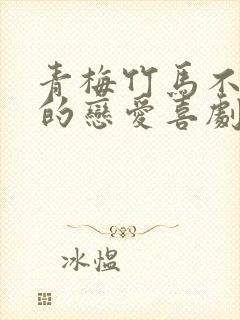 青梅竹馬不
的戀愛喜劇
冰愠